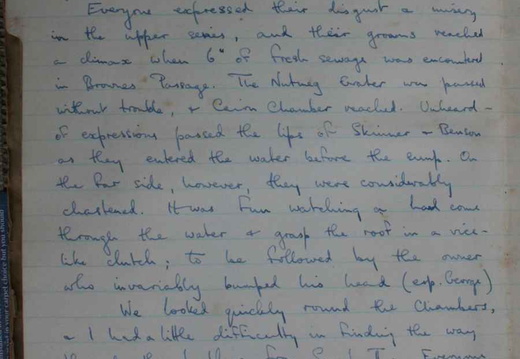 Everyone expressed their disgust & misery
in the upper series, and their groans reached
a climax when 6" of fresh sewage was encountered
in Brownes Passage. The Nutmeg Grater was passed
without trouble, & Cairn Chamber reached. Unheard-
of expressions passed the lips of Skinner & Benson
as they entered the water before the sump. On
the far side, however, they were considerably
chastened. It was fun watching a hand come
through the water & grasp the roof in a vice-
like clutch; to be followed by the owner
who invariably bumped his head (esp. George)
We looked quickly round the Chambers,
& I had a little difficulty in finding the way
Everyone